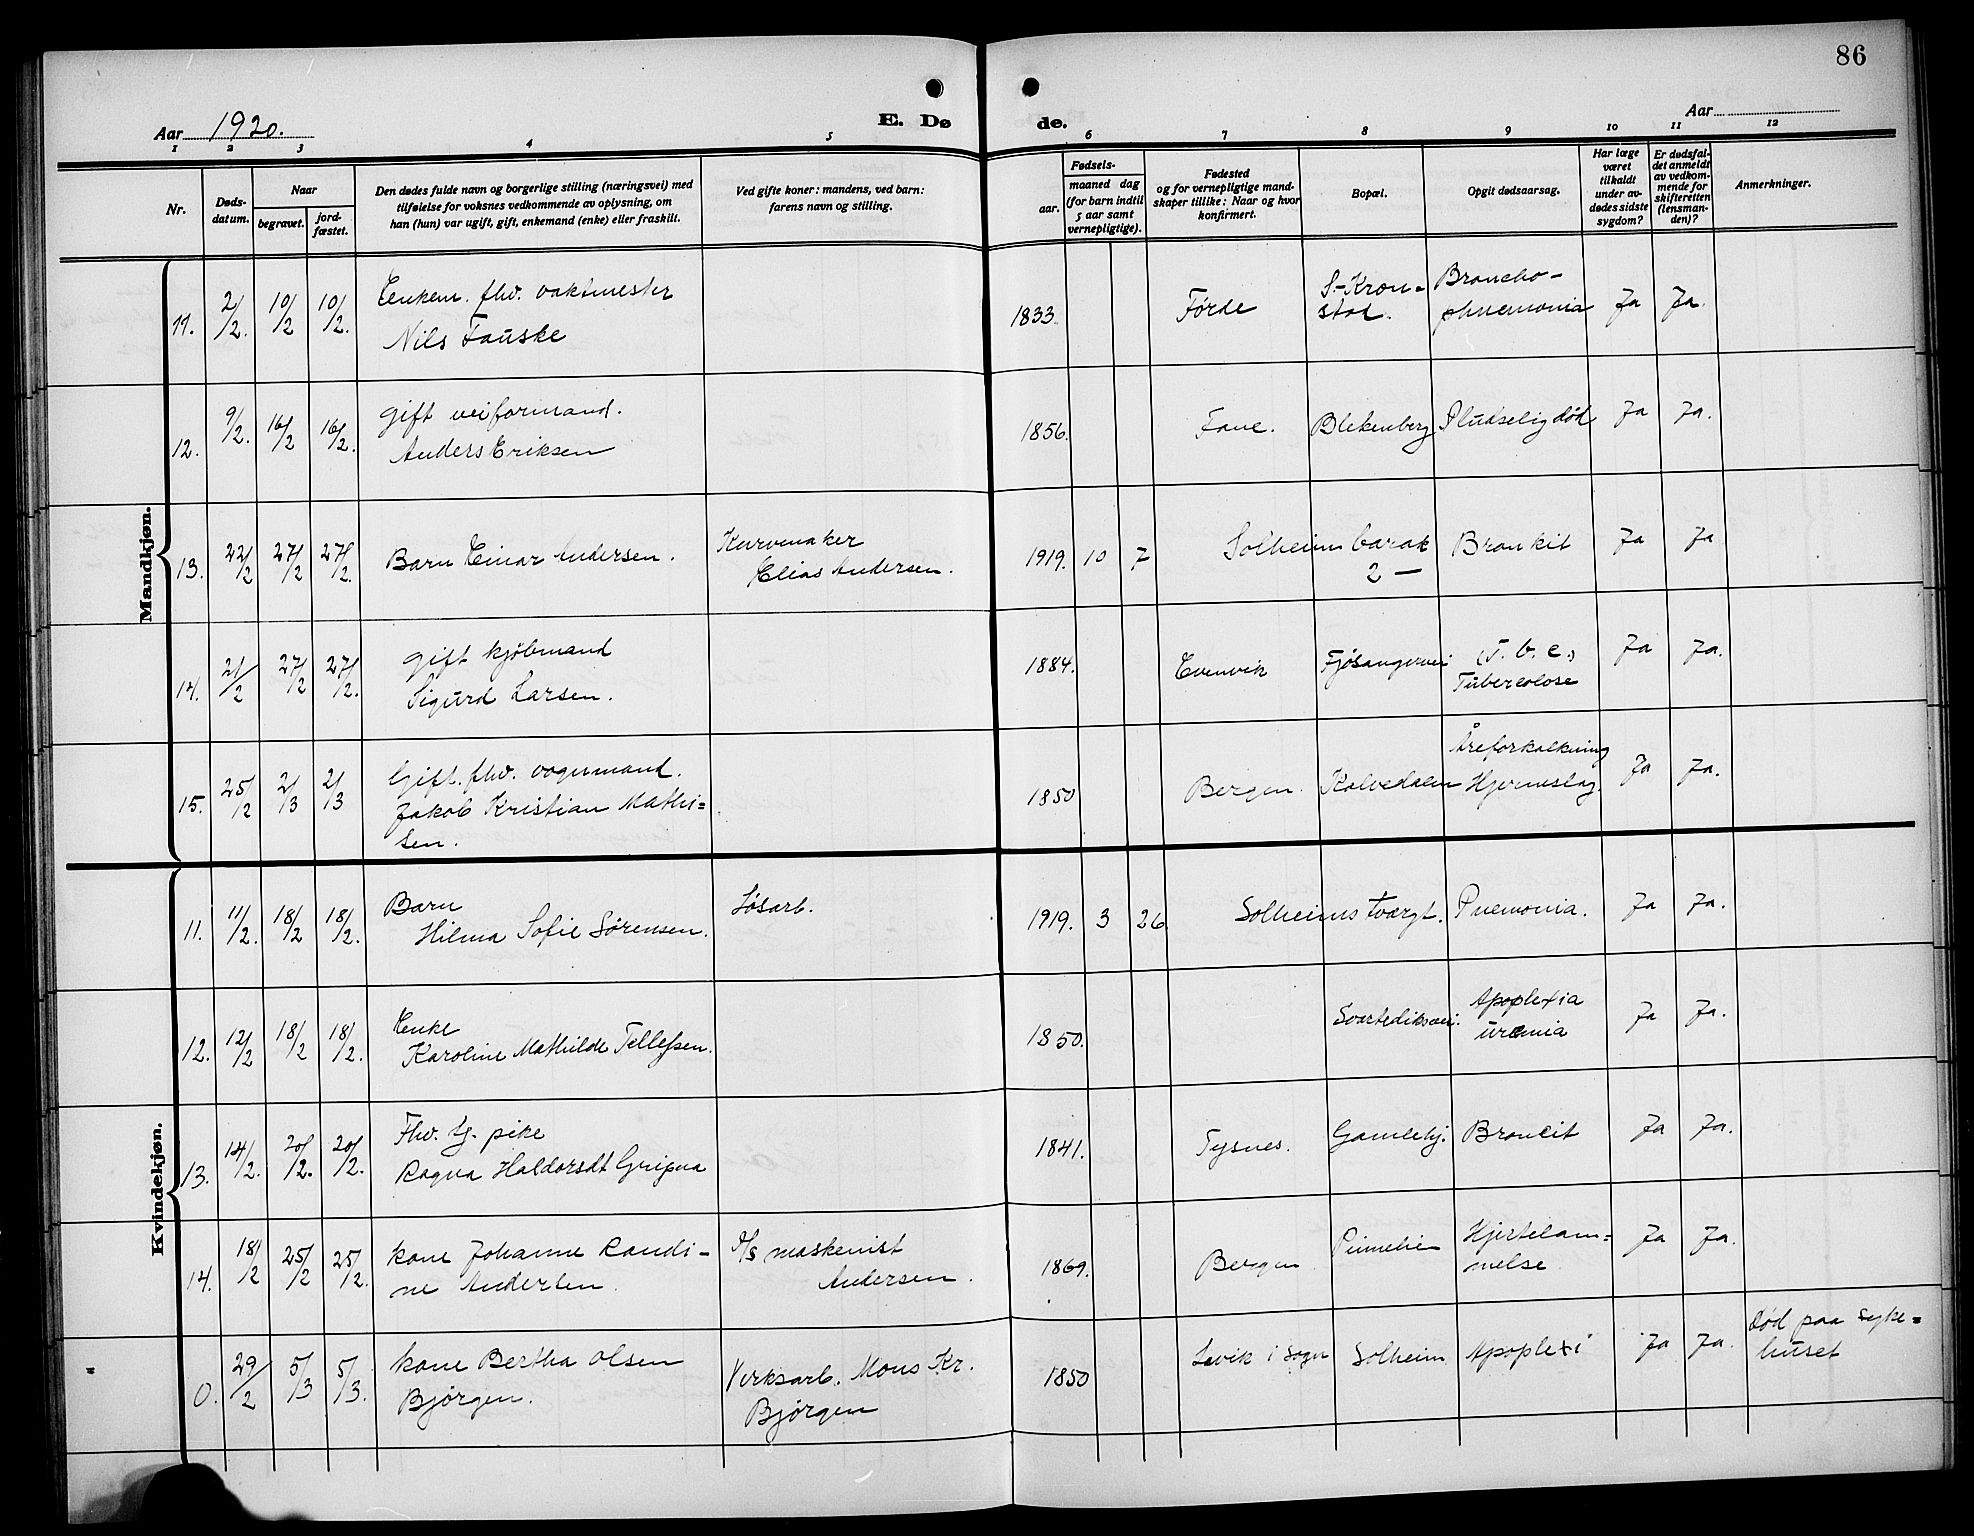 86
Aar 1920.
E. Døde.
Aar
1 2 3 4 5 6 7 8 9 10 11 12
Nr.
Døds-
datum.
Naar
begravet.
jord-
fæstet.
Den dødes fulde navn og borgerlige stilling (næringsvei) med
tilføielse for voksnes vedkommende av oplysning, om
han (hun) var ugift, gift, enkemand (enke) eller fraskilt.
Ved gifte koner: mandens, ved barn:
farens navn og stilling.
Fødsels-
aar.
maaned dag
(for barn indtil
5 aar samt
vernepligtige).
Fødested
og for vernepligtige mand-
skaper tillike: Naar og hvor
konfirmert.
Bopæl.
Opgit dødsaarsag.
Har læge
været
tilkaldt
under av-
dødes sidste
sygdom?
Er dødsfal-
det anmeldt
av vedkom-
mende for
skifteretten
(lensman-
den)?
Anmerkninger.
Mandkjøn.
11. 2/2. 10/2 10/2. Enkem. fhv. vaktmester
Nils Fauske
1833. Førde S.-Kron-
stad.
Broncho-
phnemonia
Ja Ja.
12. 9/2. 16/2 16/2. Gift veiformand.
Anders Eriksen
1856. Fane. Blekenberg Pludselig død Ja Ja.
13. 22/2 27/2 27/2. Barn Einar Andersen. Kurvmaker
Elias Andersen.
1919. 10 7 Solheim barak
2 —
Bronkit Ja Ja
14. 21/2 27/2 27/2. Gift kjøbmand
Sigurd Larsen.
1884. Evenvik Fjøsangervei (T. b. c.)
Tuberculose
Ja Ja.
15. 25/2 2/3 2/3 Gift. fhv. vognmand.
Jakob Kristian Mathi=
sen.
1850 Bergen. Kalvedalen Åreforkalkning
Hjerneslag.
Ja Ja.
Kvindekjøn.
11. 11/2. 18/2 18/2. Barn
Hilma Sofie Sørensen.
Løsarb.
1919. 3 26 Solheims tvergt. Pnemonia. Ja Ja.
12. 12/2 18/2 18/2. Enke
Karoline Mathilde Tellefsen.
1850. Svartediksvei. Apoplexia
uremia
Ja Ja.
13. 14/2. 20/2. 20/2. Fhv. tj. pike
Ragna Haldorsdt
1841. Tysnes. Gamlehj. Broncit Ja Ja.
14. 18/2 25/2 25/2. kone Johanne Randi-
ne Andersen.
D/S maskenist
Andersen.
1869. Bergen Hjertelam=
melse
Ja Ja.
0. 29/2 5/3 5/3. kone Bertha Olsen
Bjørgen.
Verksarb. Mons Kr.
Bjørgen
1850 Lavik i Sogn Solheim Apoplexi Ja Ja. død paa syke=
huset